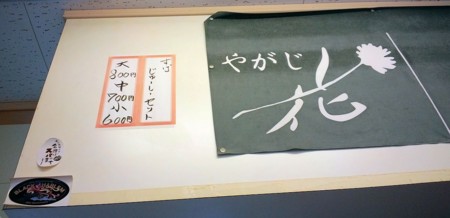 すば
じゅーし・セット
大
800円
中
700円
小
600円
やがじ
花